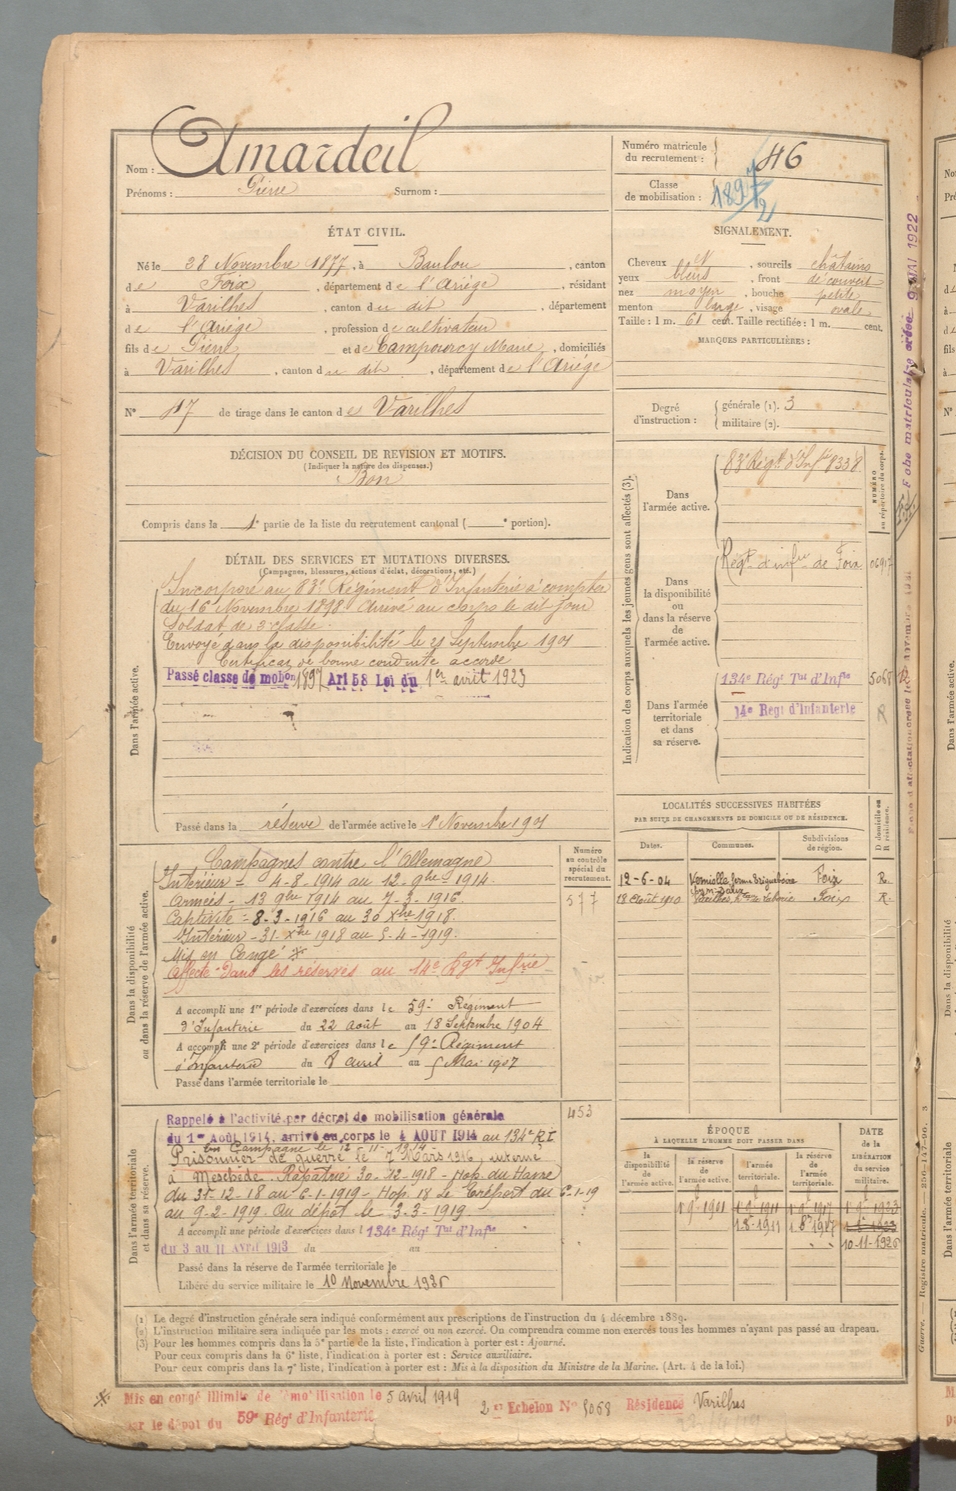 Nom : Amardeil
Prénoms : Pierre Surnom :
Numéro matricule du recrutement : 46
Classe de mobilisation : 1897
ÉTAT CIVIL.
Né le 28 Novembre 1877, à Baulou, canton
de Foix, département de l'Ariège, résidant
à Varilhes, canton du dit, département
de l'Ariège, profession de cultivateur
fils de Pierre et de Campourcy Marie, domiciliés
à Varilhes, canton du dit, département de l'Ariège
N° 117 de tirage dans le canton de Varilhes
SIGNALEMENT.
Cheveux N, sourcils châtains
yeux bleus, front découvert
nez moyen, bouche petite
menton large, visage ovale
Taille : 1 m. 61 cent. Taille rectifiée : 1 m. cent.
MARQUES PARTICULIÈRES :
Degré d'instruction : générale (1). 3
militaire (2).
DÉCISION DU CONSEIL DE REVISION ET MOTIFS.
(Indiquer la nature des dispenses.)
Bon
Compris dans la 1e partie de la liste du recrutement cantonal ( e portion).
DÉTAIL DES SERVICES ET MUTATIONS DIVERSES.
(Campagnes, blessures, actions d'éclat, décorations, etc.)
Dans l'armée active.
Incorporé au 83e Régiment d'Infanterie à compter
du 16 Novembre 1898 Arrivé au corps le dit jour
Soldat de 2e classe.
Envoyé dans la disponibilité le 21 Septembre 1901
Certificat de bonne conduite accordé
Passé classe de mobon 1897 Art 58 Loi du 1er avril 1923
Passé dans la réserve de l'armée active le 1er Novembre 1901
Indication des corps auxquels les jeunes gens sont affectés (3).
NUMÉRO au répertoire du corps.
Dans l'armée active.
83e Régt d'Infie 8338
Dans la disponibilité ou dans la réserve de l'armée active.
Régt d'infie de Foix 06917
Dans l'armée territoriale et dans sa réserve.
134e Régt Tal d'Infie 5068
14e Régt d'Infanterie R
LOCALITÉS SUCCESSIVES HABITÉES
PAR SUITE DE CHANGEMENTS DE DOMICILE OU DE RÉSIDENCE.
Dates. Communes. Subdivisions de région. D domicile ou R résidence.
12-6-04 Verniolle Foix R.
18 Août 1910 Varilhes Foix R.
Dans la disponibilité ou dans la réserve de l'armée active.
Numéro au contrôle spécial du recrutement.
577
Campagnes contre l'Allemagne
Intérieur = 4-8-1914 au 12-9bre 1914.
Armées - 13 9bre 1914 au 7-3-1916.
Captivité = 8-3-1916 au 30 Xbre 1918.
Intérieur - 31-Xbre 1918 au 5-4-1919.
Mis en Congé *
Affecté dans les réserves au 14e Rgt Infrie
A accompli une 1re période d'exercices dans le 59e Régiment
d'Infanterie du 22 août au 18 Septembre 1904
A accompli une 2e période d'exercices dans le 59e Régiment
d'Infanterie du 8 avril au 5 Mai 1907
Passé dans l'armée territoriale le
Dans l'armée territoriale et dans sa réserve.
453
Rappelé à l'activité par décret de mobilisation générale
du 1er Août 1914, arrivé au corps le 4 AOUT 1914 au 134e R.I.
En Campagne le 12-11-1914
Prisonnier de guerre le 7 Mars 1916, interné
à Meschède. Rapatrié 30-12-1918 - Hop. du Havre
du 31-12-18 au 6-1-1919 - Hop. 18 Le Tréport du 6-1-19
au 9-2-1919. Au dépôt le 3-3-1919.
A accompli une période d'exercices dans l 134e Régt Tal d'Infie
du 3 au 11 Avril 1913 du au
Passé dans la réserve de l'armée territoriale le
Libéré du service militaire le 10 Novembre 1926
ÉPOQUE
À LAQUELLE L'HOMME DOIT PASSER DANS
DATE de la LIBÉRATION du service militaire.
la disponibilité de l'armée active. la réserve de l'armée active. l'armée territoriale. la réserve de l'armée territoriale.
1 9-1901 1 9-1911 1 9-1917 1 9-1923
1 8-1911 1 8-1917
10-11-1926
(1) Le degré d'instruction générale sera indiqué conformément aux prescriptions de l'instruction du 4 décembre 1889.
(2) L'instruction militaire sera indiquée par les mots : exercé ou non exercé. On comprendra comme non exercés tous les hommes n'ayant pas passé au drapeau.
(3) Pour les hommes compris dans la 5e partie de la liste, l'indication à porter est : Ajourné.
Pour ceux compris dans la 6e liste, l'indication à porter est : Service auxiliaire.
Pour ceux compris dans la 7e liste, l'indication à porter est : Mis à la disposition du Ministre de la Marine. (Art. 4 de la loi.)
* Mis en congé illimité de démobilisation le 5 avril 1919
par le dépôt du 59e Régt d'Infanterie
2e Echelon N° 5068 Résidence Varilhes
Fiche matriculaire créée 9 MAI 1922